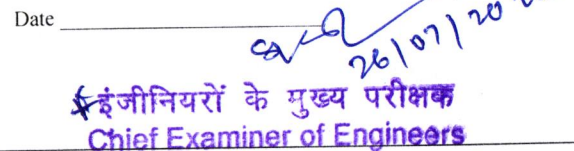 Date
26/07/20
इंजीनियरों के मुख्य परीक्षक
Chief Examiner of Engineers